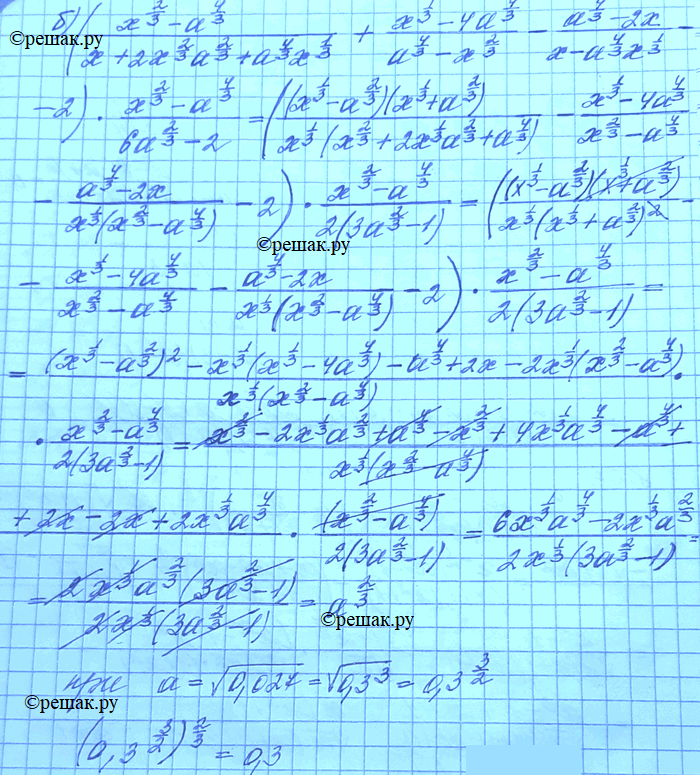 б) ( (x^{2/3} - a^{4/3}) / (x + 2x^{2/3}a^{2/3} + a^{4/3}x^{1/3}) + (x^{1/3} - 4a^{4/3}) / (a^{4/3} - x^{2/3}) - (a^{4/3} - 2x) / (x - a^{4/3}x^{1/3}) -
©решак.ру
- 2) · (x^{2/3} - a^{4/3}) / (6a^{2/3} - 2) = ( ((x^{1/3} - a^{2/3})(x^{1/3} + a^{2/3})) / (x^{1/3}(x^{2/3} + 2x^{1/3}a^{2/3} + a^{4/3})) - (x^{1/3} - 4a^{4/3}) / (x^{2/3} - a^{4/3})
- (a^{4/3} - 2x) / (x^{1/3}(x^{2/3} - a^{4/3})) - 2) · (x^{2/3} - a^{4/3}) / (2(3a^{2/3} - 1)) = ( ((x^{1/3} - a^{2/3})(x^{1/3} + a^{2/3})) / (x^{1/3}(x^{1/3} + a^{2/3})^2) -
©решак.ру
- (x^{1/3} - 4a^{4/3}) / (x^{2/3} - a^{4/3}) - (a^{4/3} - 2x) / (x^{1/3}(x^{2/3} - a^{4/3})) - 2) · (x^{2/3} - a^{4/3}) / (2(3a^{2/3} - 1)) =
= ((x^{1/3} - a^{2/3})^2 - x^{1/3}(x^{1/3} - 4a^{4/3}) - a^{4/3} + 2x - 2x^{1/3}(x^{2/3} - a^{4/3})) / (x^{1/3}(x^{2/3} - a^{4/3})) ·
· (x^{2/3} - a^{4/3}) / (2(3a^{2/3} - 1)) = (x^{2/3} - 2x^{1/3}a^{2/3} + a^{4/3} - x^{2/3} + 4x^{1/3}a^{4/3} - a^{4/3} + / (x^{1/3}(x^{2/3} - a^{4/3}))
+ 2x - 2x + 2x^{1/3}a^{4/3}) · (x^{2/3} - a^{4/3}) / (2(3a^{2/3} - 1)) = (6x^{1/3}a^{4/3} - 2x^{1/3}a^{2/3}) / (2x^{1/3}(3a^{2/3} - 1)) =
= (2x^{1/3}a^{2/3}(3a^{2/3} - 1)) / (2x^{1/3}(3a^{2/3} - 1)) = a^{2/3}
©решак.ру
при a = √0,027 = √0,3^3 = 0,3^{3/2}
©решак.ру
(0,3^{3/2})^{2/3} = 0,3